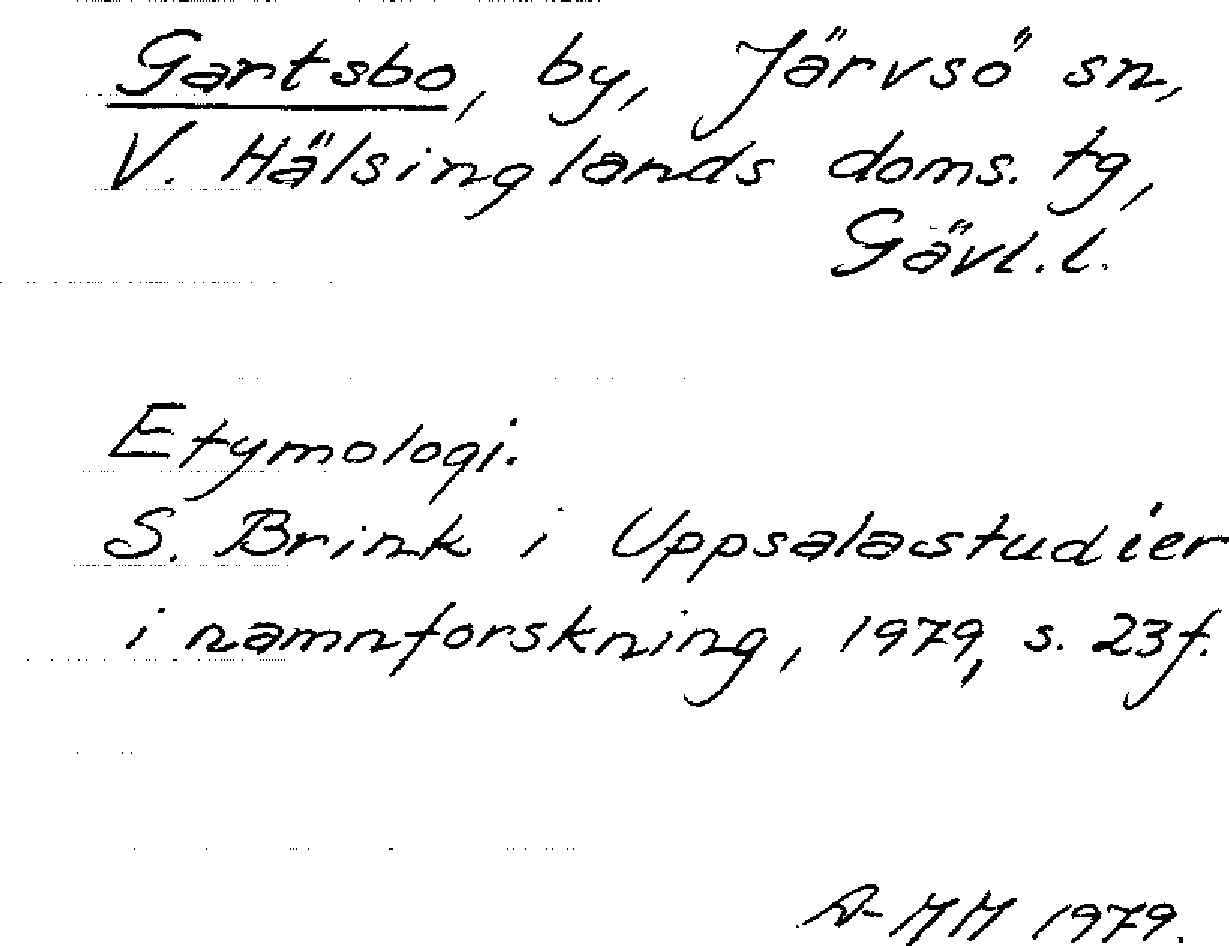 Gartsbo, by, Järvsö sn,
V. Hälsinglands doms. tg,
Gävl. l.
Etymologi.
S. Brink i Uppsalastudier
i namnforskning, 1979, s. 23f.
MM 1979.